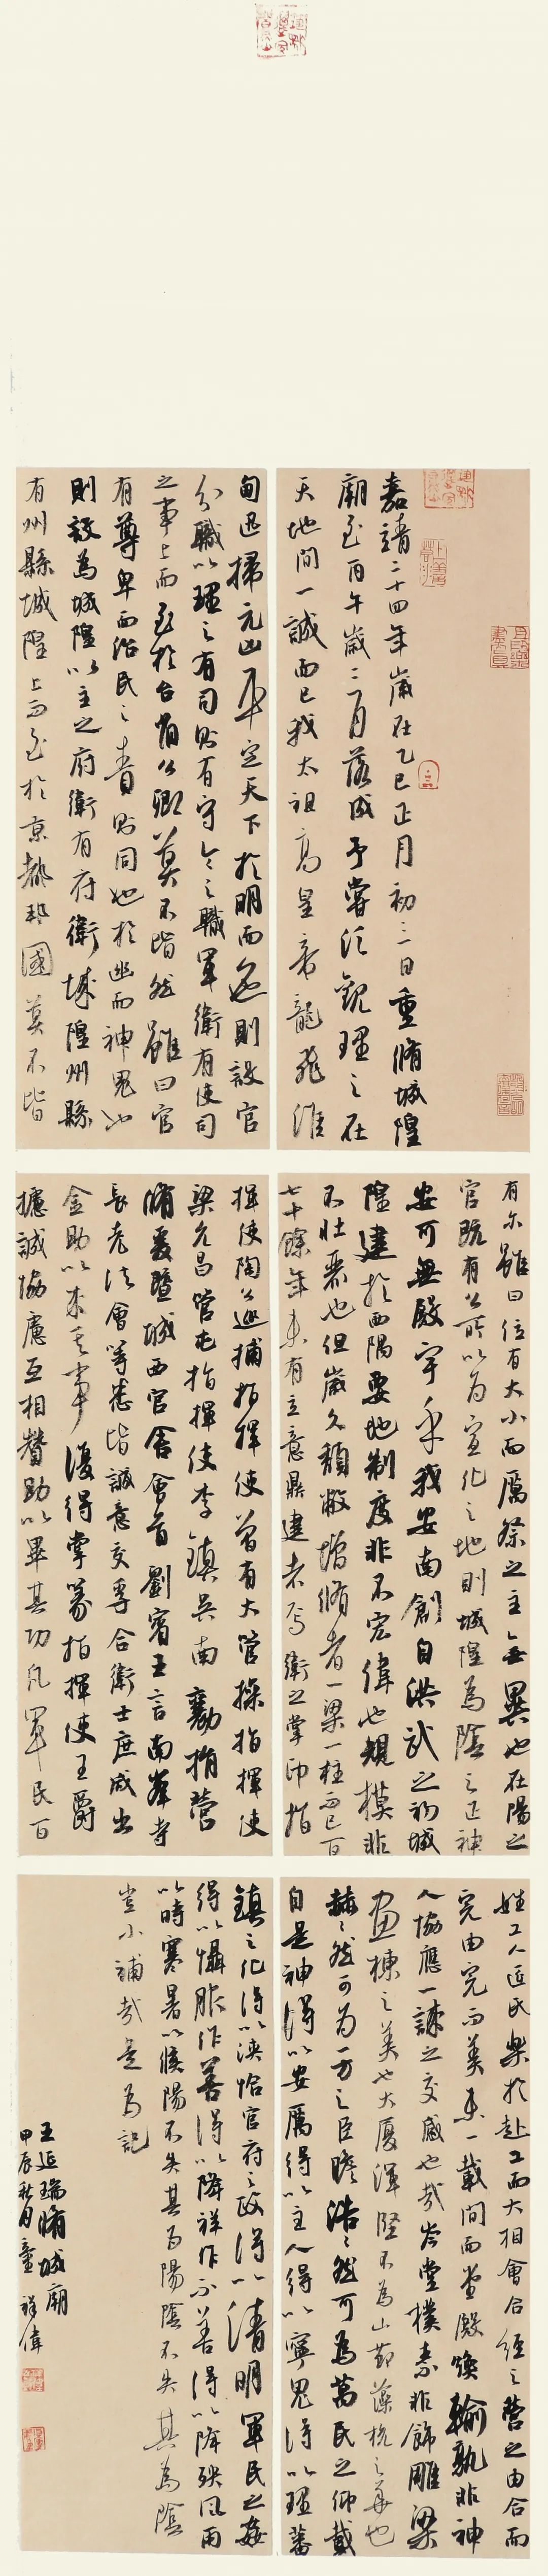 嘉靖二十四年歲在乙巳正月初三日重脩城隍
廟至丙午歲二月落成予嘗泛觀理之在
天地間一誠而已我太祖高皇帝龍飛淮
甸迅掃元凶平定天下於明而則設官
分職以理之有司則有守令之職軍衛有使司
之事上而至於台省公卿莫不皆然雖曰官
有尊卑而治民之責則同也於幽而神鬼也
則設為城隍以主之府衛有府衛城隍州縣
有州縣城隍上而至於京都邦國莫不皆
有尔雖曰位有大小而厲祭之主無異也在陽之
官既有公所以為宣化之地則城隍為陰之正神
安可無殿宇乎我安南創自洪武之初城
隍建於西隅要地制度非不宏偉也規模非
不壯麗也但歲久頹敝增脩者一梁一柱而已百
七十餘年未有立意鼎建者焉衛之掌印指
揮使陶公巡捕指揮使曾有大管操指揮使
梁允昌管屯指揮使李鎮吳南勸捐營
脩爰暨城西官舍會首劉賓王言南峯寺
長老法會等悉皆誠意交孚合衛士庶咸出
金助以求其事復得掌篆指揮使王爵
攄誠協慮互相贊助以畢其功凡軍民百
姓工人匠氏樂於赴工而大相會合經之營之由合而
完由完而美未一載間而堂殿煥輪孰非神
人協應一誠之交感也哉茲堂樸素非飾雕梁
畫棟之美也大廈渾堅不為山節藻梲之華也
赫赫然可為一方之臣瞻浩浩然可為萬民之仰戴
自是神得以安厲得以主人得以寧鬼得以理藩
鎮之化得以浹洽官府之政得以清明軍民之姦
得以懾服作善得以降祥作不善得以降殃風雨
以時寒暑以候陽不失其為陽陰不失其為陰
豈小補哉是為記
王延瑞脩城廟
甲辰秋月童祥偉